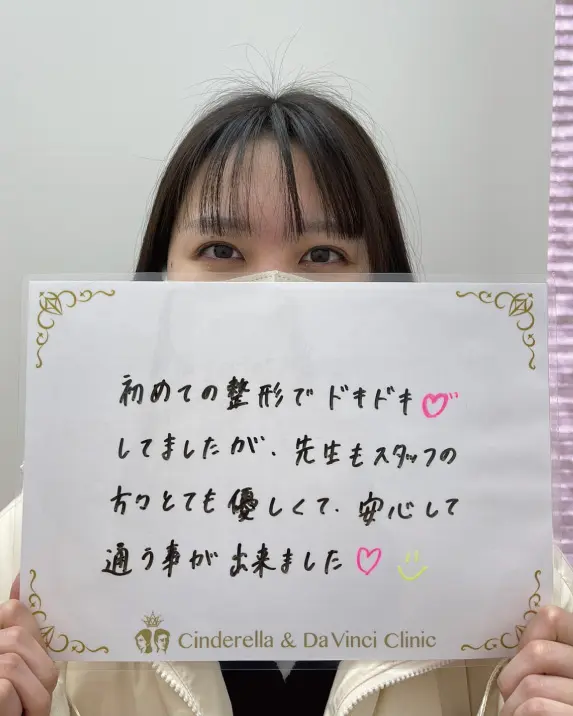 初めての整形でドキドキ♡
してましたが、先生もスタッフの
方々とても優しくて、安心して
通う事が出来ました♡
Cinderella & DaVinci Clinic